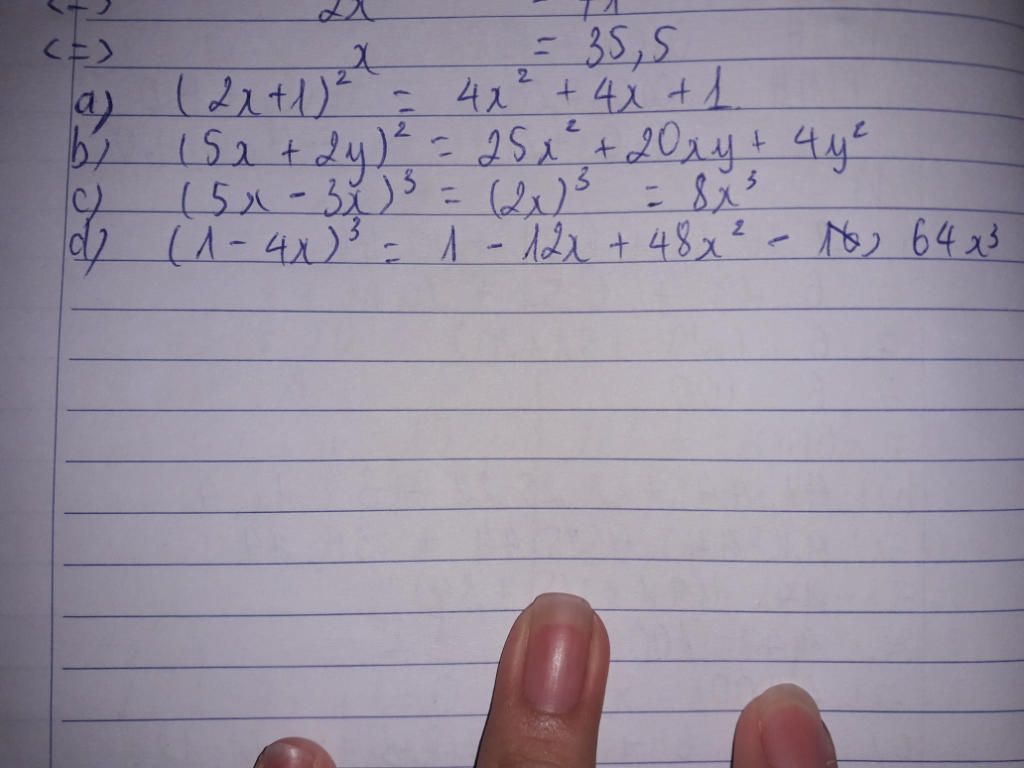 (=) 2x = 71
(=) x = 35,5
a) (2x+1)² = 4x² + 4x + 1
b) (5x + 2y)² = 25x² + 20xy + 4y²
c) (5x - 3x)³ = (2x)³ = 8x³
d) (1 - 4x)³ = 1 - 12x + 48x² - 64x³